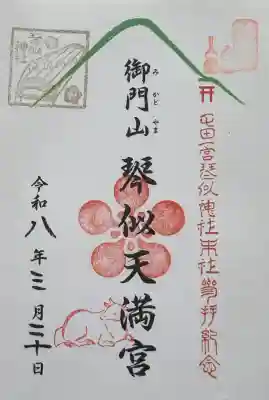 屯田一宮琴似神社末社参拝紀念
御門山
み かど やま
琴似天満宮
令和八年三月二十日